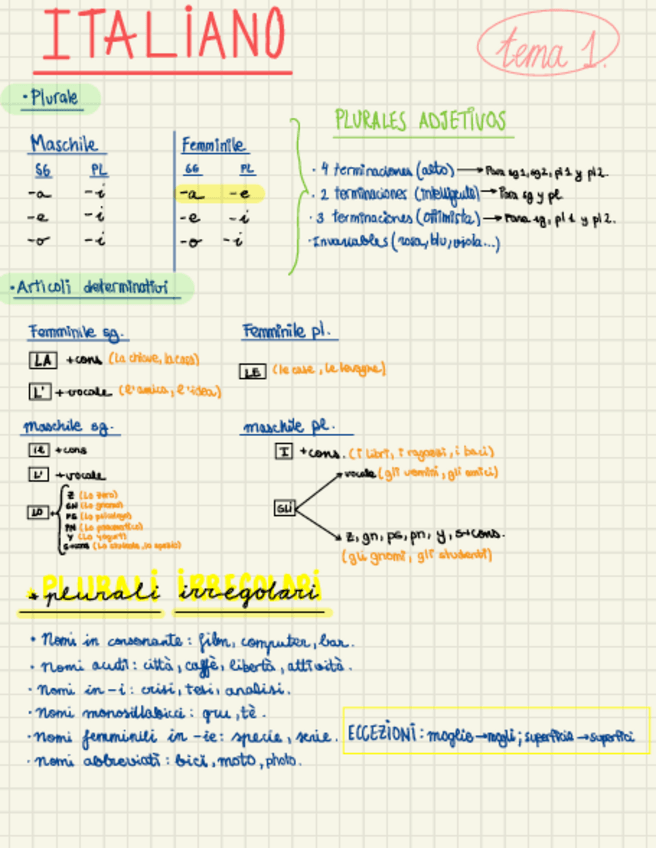 ITALIANO
tema 1.
• Plurale
Maschile
SG PL
-a -i
-e -i
-o -i
Femminile
SG PL
-a -e
-e -i
-o -i
PLURALES ADJETIVOS
· 4 terminaciones (alto) → Para sg1, sg2, pl1 y pl2.
· 2 terminaciones (intelligente) → Para sg y pl
· 3 terminaciones (ottimista) → Para sg, pl1 y pl2.
· Invariables (rosa, blu, viola...)
• Articoli determinativi
Femminile sg.
LA + cons (la chiave, la casa)
L' + vocale (l'amica, l'idea)
Femminile pl.
LE (le case, le lavagne)
maschile sg.
IL + cons
L' + vocale
LO +
Z (lo zero)
GN (lo gnomo)
PS (lo psicologo)
PN (lo pneumatico)
Y (lo yogurt)
S+cons (lo studente, lo specchio)
maschile pl.
I + cons. (i libri, i ragazzi, i baci)
GLI
vocale (gli uomini, gli amici)
z, gn, ps, pn, y, s+cons.
(gli gnomi, gli studenti)
PLURALI IRREGOLARI
• plurali irregolari
• Nomi in consonante: film, computer, bar.
• Nomi acuti: città, caffè, libertà, attività.
· Nomi in -i: crisi, tesi, analisi.
• Nomi monosillabici: gru, tè.
· Nomi femminili in -ie: specie, serie.
ECCEZIONI: moglie → mogli; superficie → superfici
· Nomi abbreviati: bici, moto, photo.